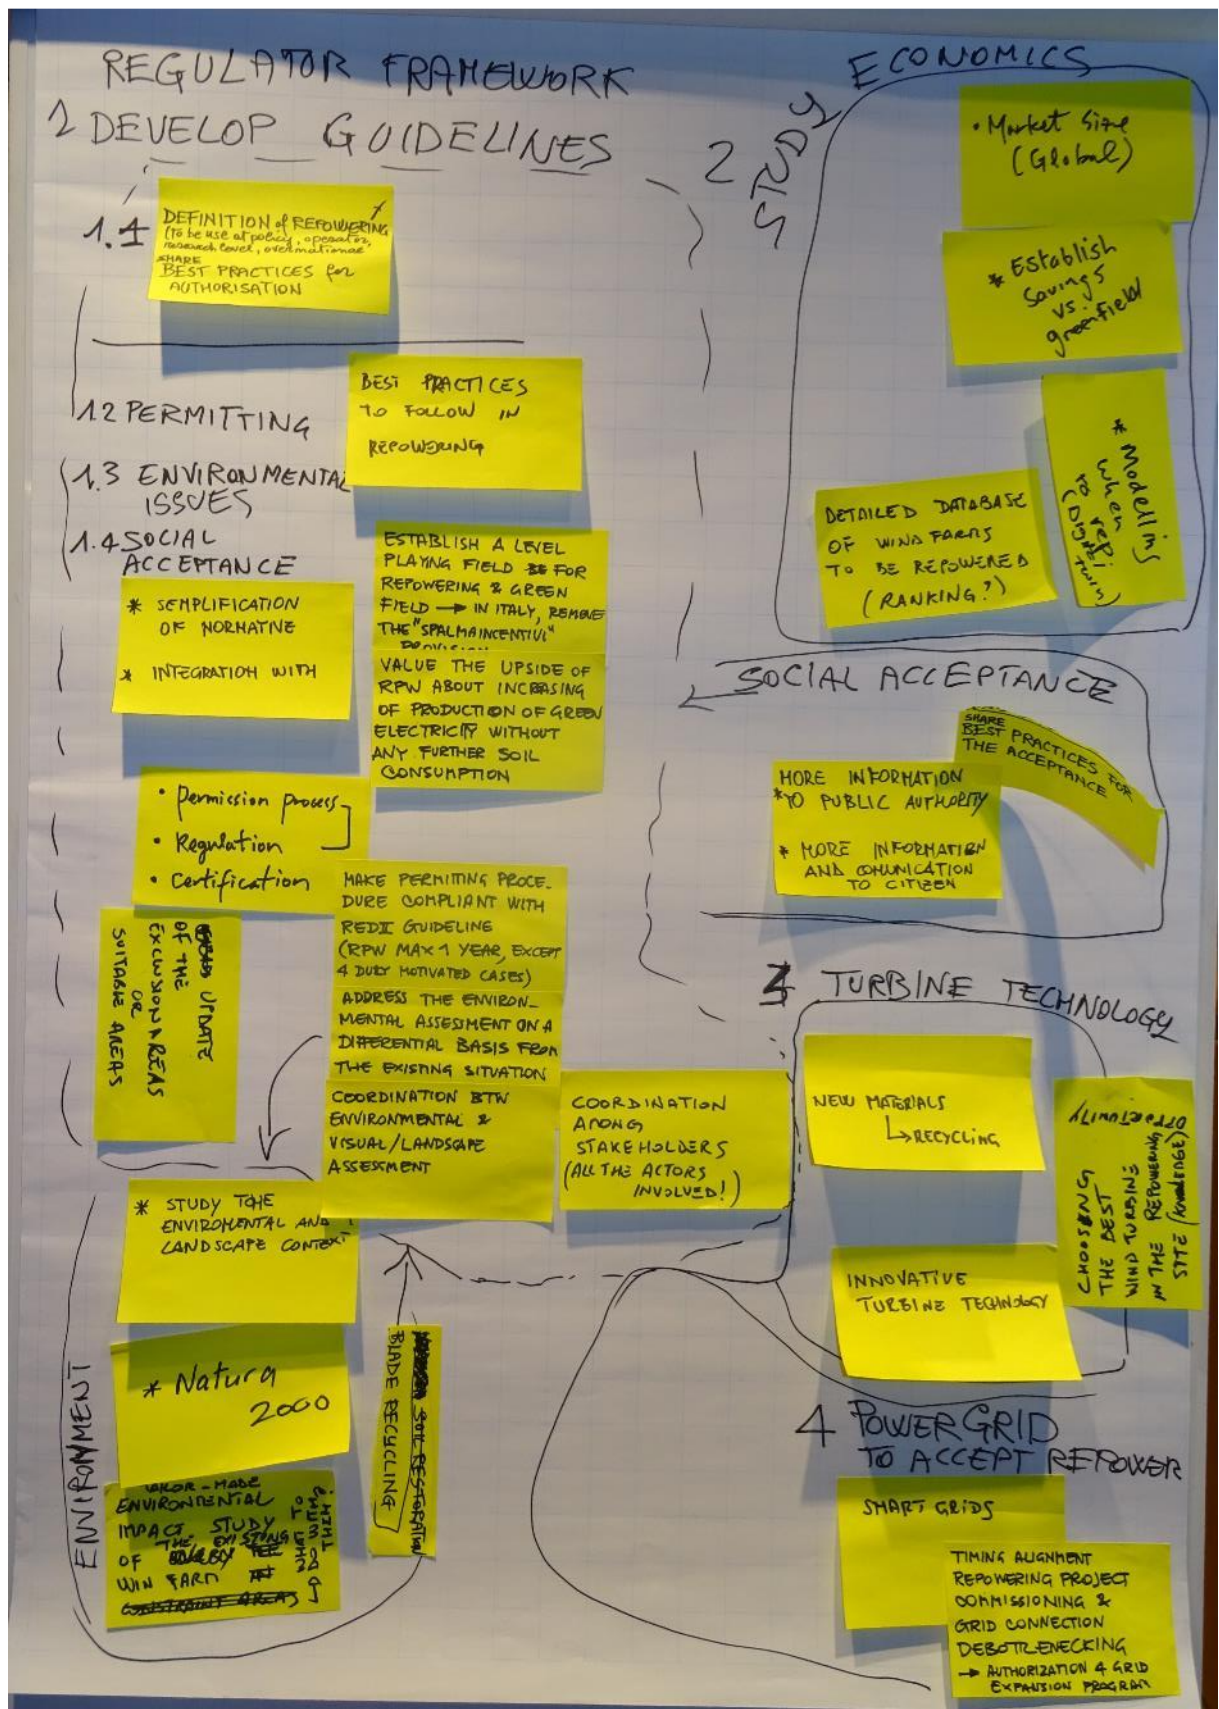 REGULATOR FRAMEWORK
1 DEVELOP GUIDELINES
1.1
DEFINITION of REPOWERING
(To be use at policy, operator,
research level, over national
SHARE
BEST PRACTICES for
AUTHORISATION
1.2 PERMITTING
BEST PRACTICES
TO FOLLOW IN
REPOWERING
1.3 ENVIRONMENTAL
ISSUES
1.4 SOCIAL
ACCEPTANCE
* SEMPLIFICATION
OF NORMATIVE
* INTEGRATION WITH
ESTABLISH A LEVEL
PLAYING FIELD FOR
REPOWERING & GREEN
FIELD → IN ITALY, REMOVE
THE "SPALMAINCENTIVI"
PROVISION
VALUE THE UPSIDE OF
RPW ABOUT INCREASING
OF PRODUCTION OF GREEN
ELECTRICITY WITHOUT
ANY FURTHER SOIL
CONSUMPTION
• Permission process
• Regulation
• Certification
UPDATE
OF THE
EXCLUSION AREAS
OR
SUITABLE AREAS
MAKE PERMITING PROCE_
DURE COMPLIANT WITH
REDII GUIDELINE
(RPW MAX 1 YEAR, EXCEPT
4 DULY MOTIVATED CASES)
ADDRESS THE ENVIRON_
MENTAL ASSESSMENT ON A
DIFFERENTIAL BASIS FROM
THE EXISTING SITUATION
COORDINATION BTW
ENVIRONMENTAL &
VISUAL/LANDSCAPE
ASSESSMENT
COORDINATION
AMONG
STAKEHOLDERS
(ALL THE ACTORS
INVOLVED!)
ENVIRONMENT
* STUDY THE
ENVIROMENTAL AND
LANDSCAPE CONTEXT
* Natura
2000
TAILOR-MADE
ENVIRONMENTAL
IMPACT STUDY
OF THE EXISTING
WIN FARM
CONSTRAINT AREAS
SOIL RESTORATION
BLADE RECYCLING
2 STUDY
ECONOMICS
• Market Size
(Global)
* Establish
Savings
vs.
greenfield
* Modelling
when
to rep.
(Digital twin)
DETAILED DATABASE
OF WIND FARMS
TO BE REPOWERED
(RANKING?)
SOCIAL ACCEPTANCE
SHARE
BEST PRACTICES FOR
THE ACCEPTANCE
MORE INFORMATION
* TO PUBLIC AUTHORITY
* MORE INFORMATION
AND COMUNICATION
TO CITIZEN
3 TURBINE TECHNOLOGY
NEW MATERIALS
↳ RECYCLING
OPPORTUNITY
CHOOSING
THE BEST
WIND TURBINE
IN THE REPOWERING
SITE (KNOWLEDGE)
INNOVATIVE
TURBINE TECHNOLOGY
4 POWER GRID
TO ACCEPT REPOWER
SMART GRIDS
TIMING ALIGNMENT
REPOWERING PROJECT
COMMISSIONING &
GRID CONNECTION
DEBOTLENECKING
→ AUTHORIZATION 4 GRID
EXPANSION PROGRAM